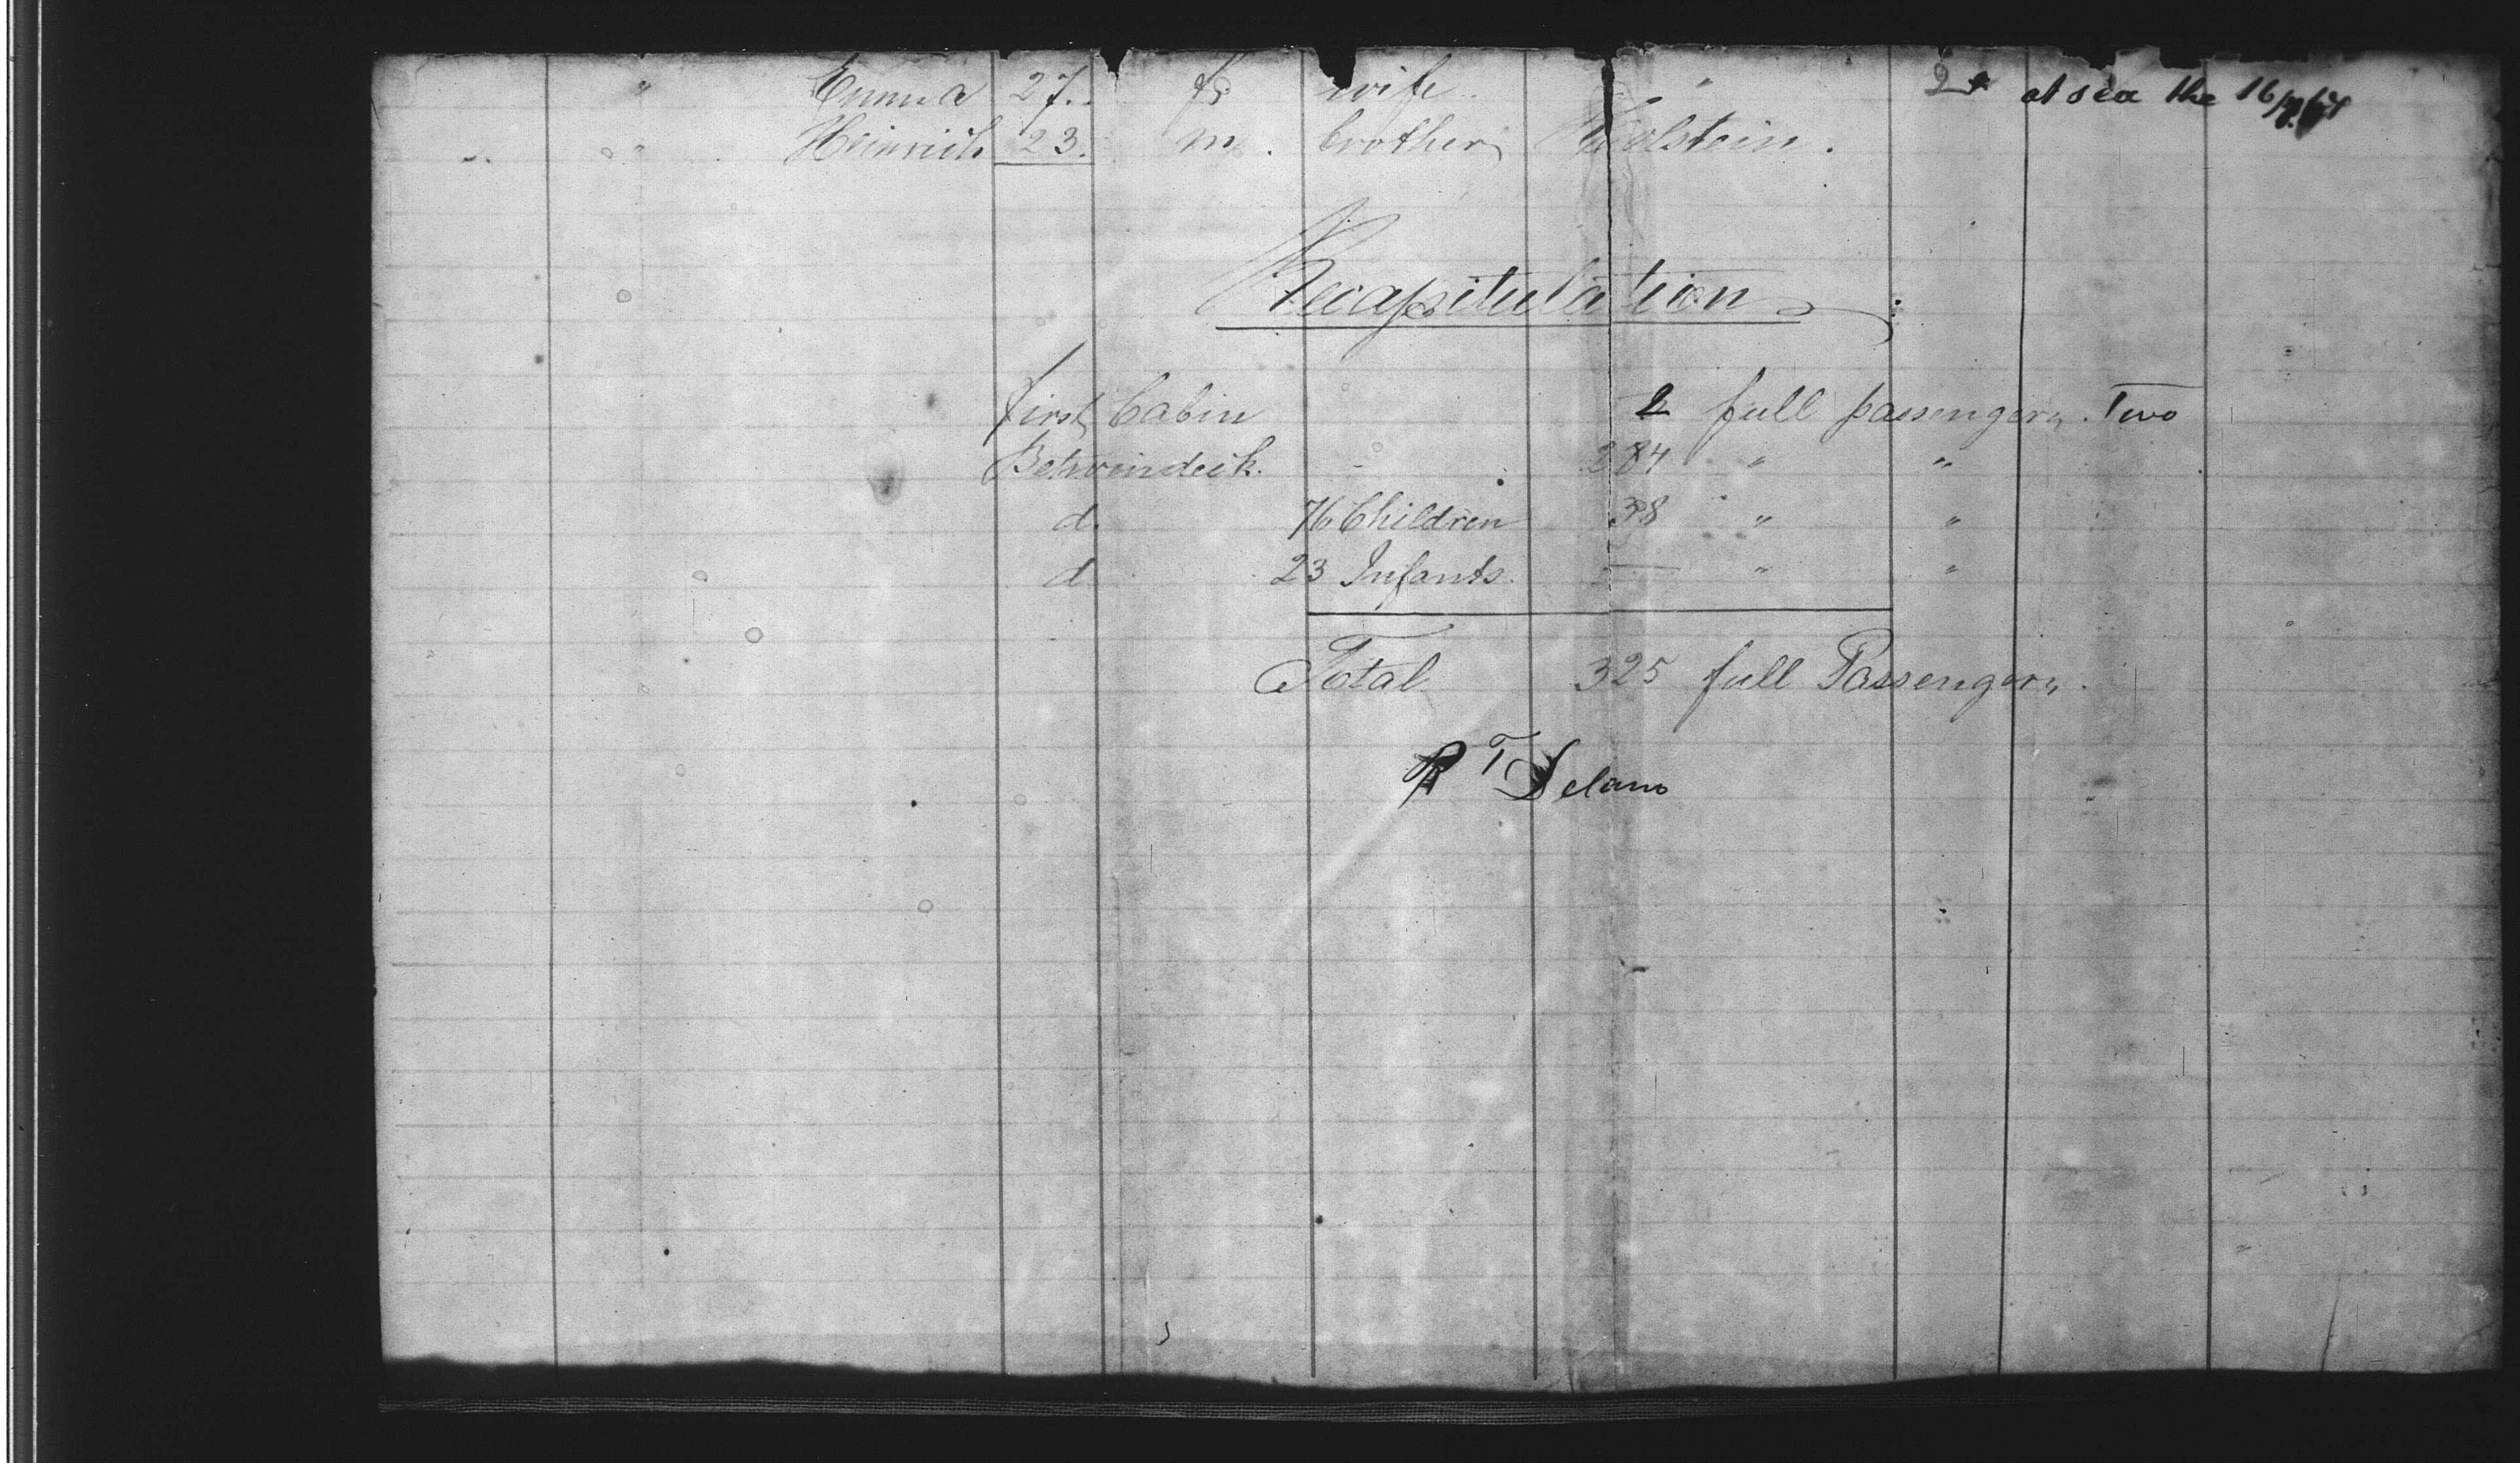 " Emma 27. f. wife "
at sea the 16
" " Heinrich 23. m. brother, Holstein.
Recapitulation
First Cabin 2 full passengers. Two
Betweindeck. 284 " "
d. 76 Children 38 " "
d 23 Infants. — " "
Total 325 full Passengers.
R T Delano